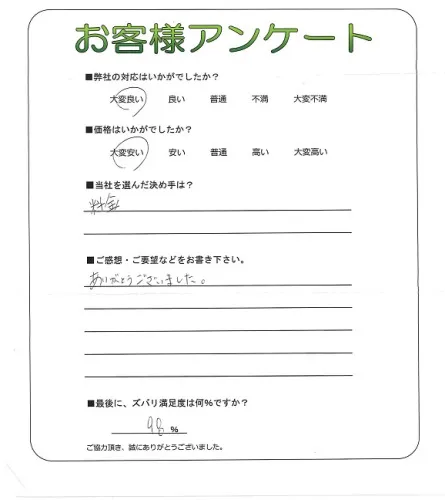 お客様アンケート
■弊社の対応はいかがでしたか？
大変良い 良い 普通 不満 大変不満
■価格はいかがでしたか？
大変安い 安い 普通 高い 大変高い
■当社を選んだ決め手は？
料金
■ご感想・ご要望などをお書き下さい。
ありがとうございました。
■最後に、ズバリ満足度は何％ですか？
98 ％
ご協力頂き、誠にありがとうございました。